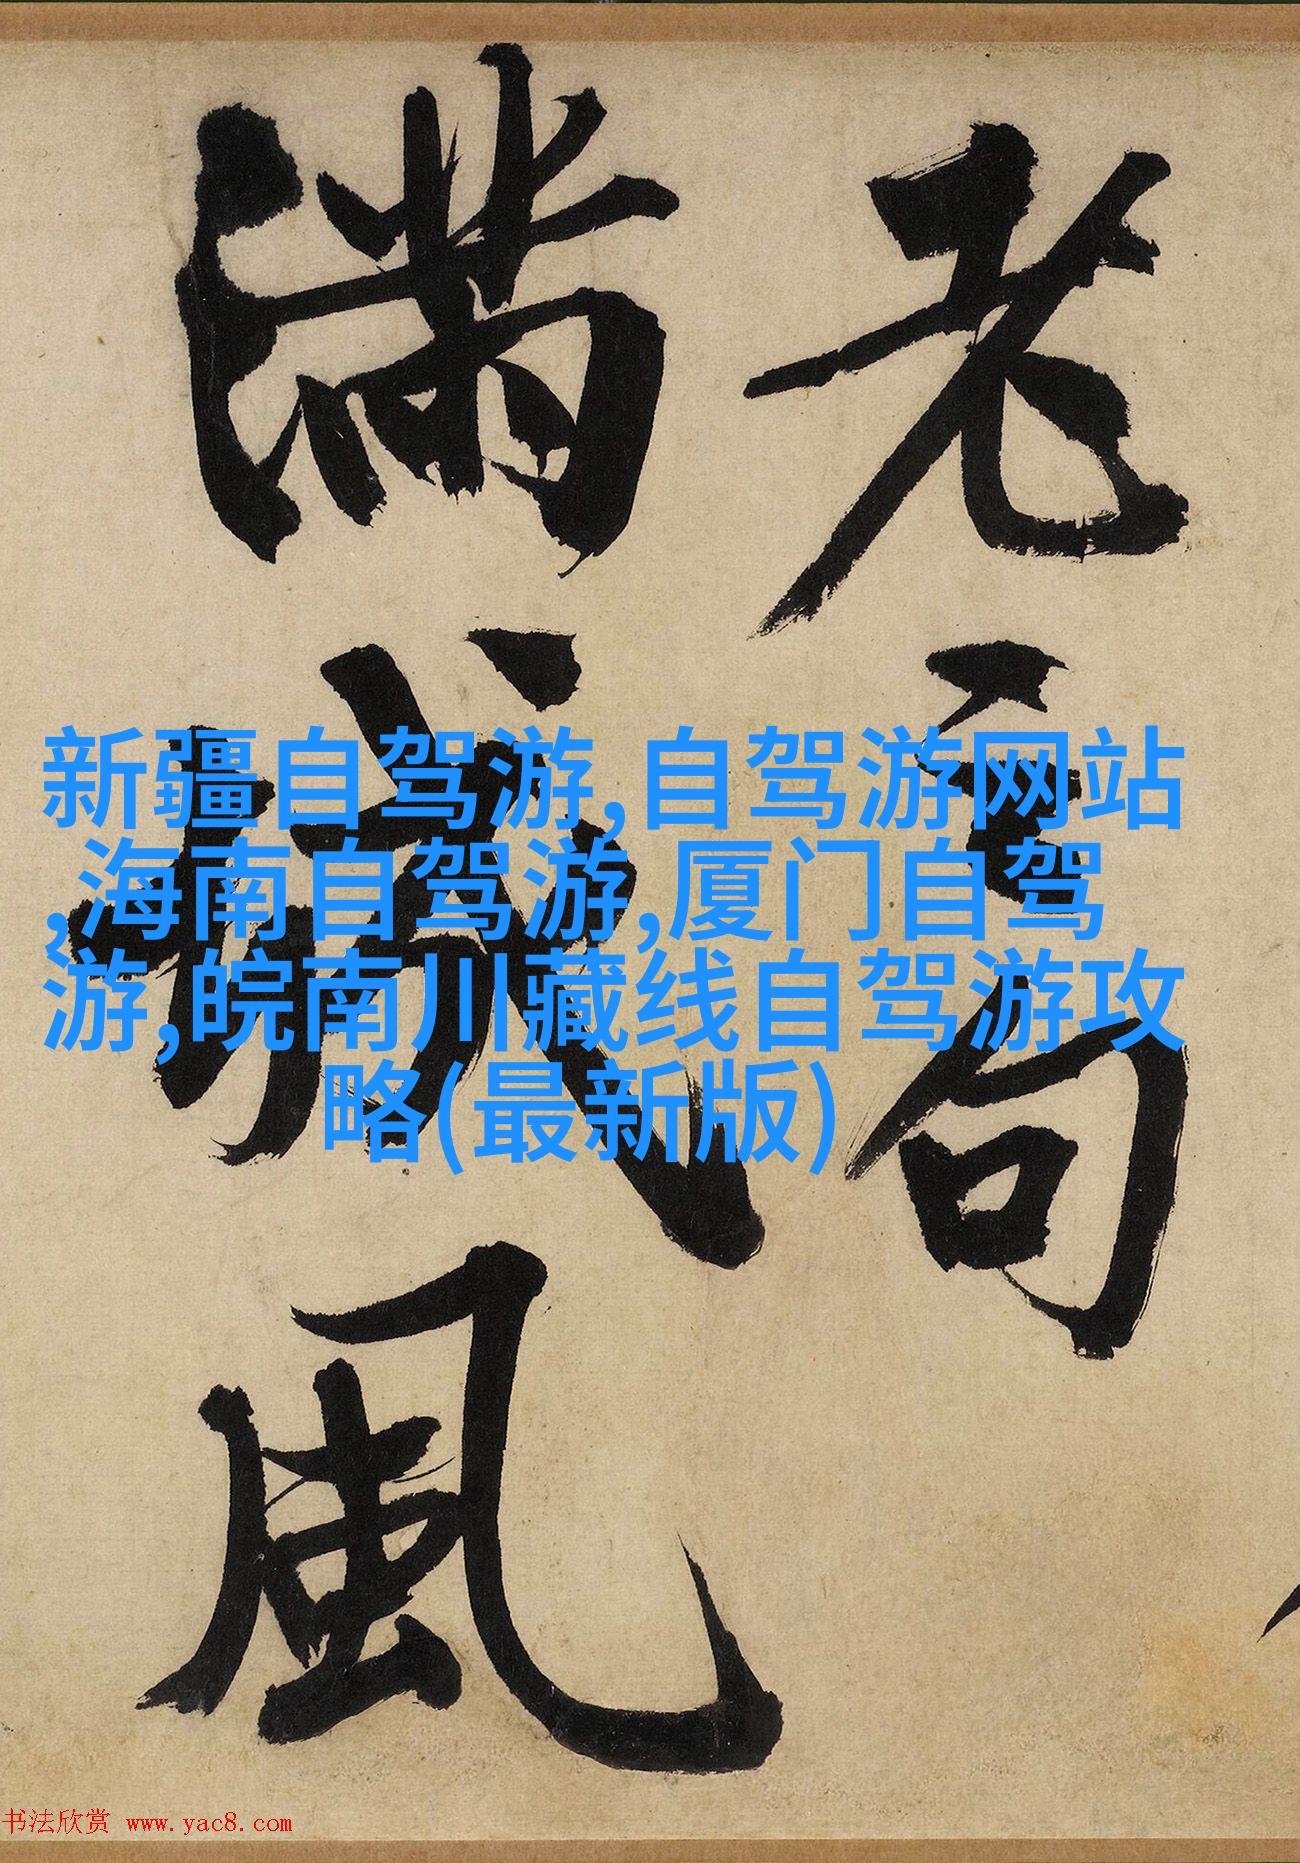 老之句
满城风
新疆自驾游,自驾游网站
,海南自驾游,厦门自驾
游,皖南川藏线自驾游攻
略(最新版)
书法欣赏 www.yac8.com